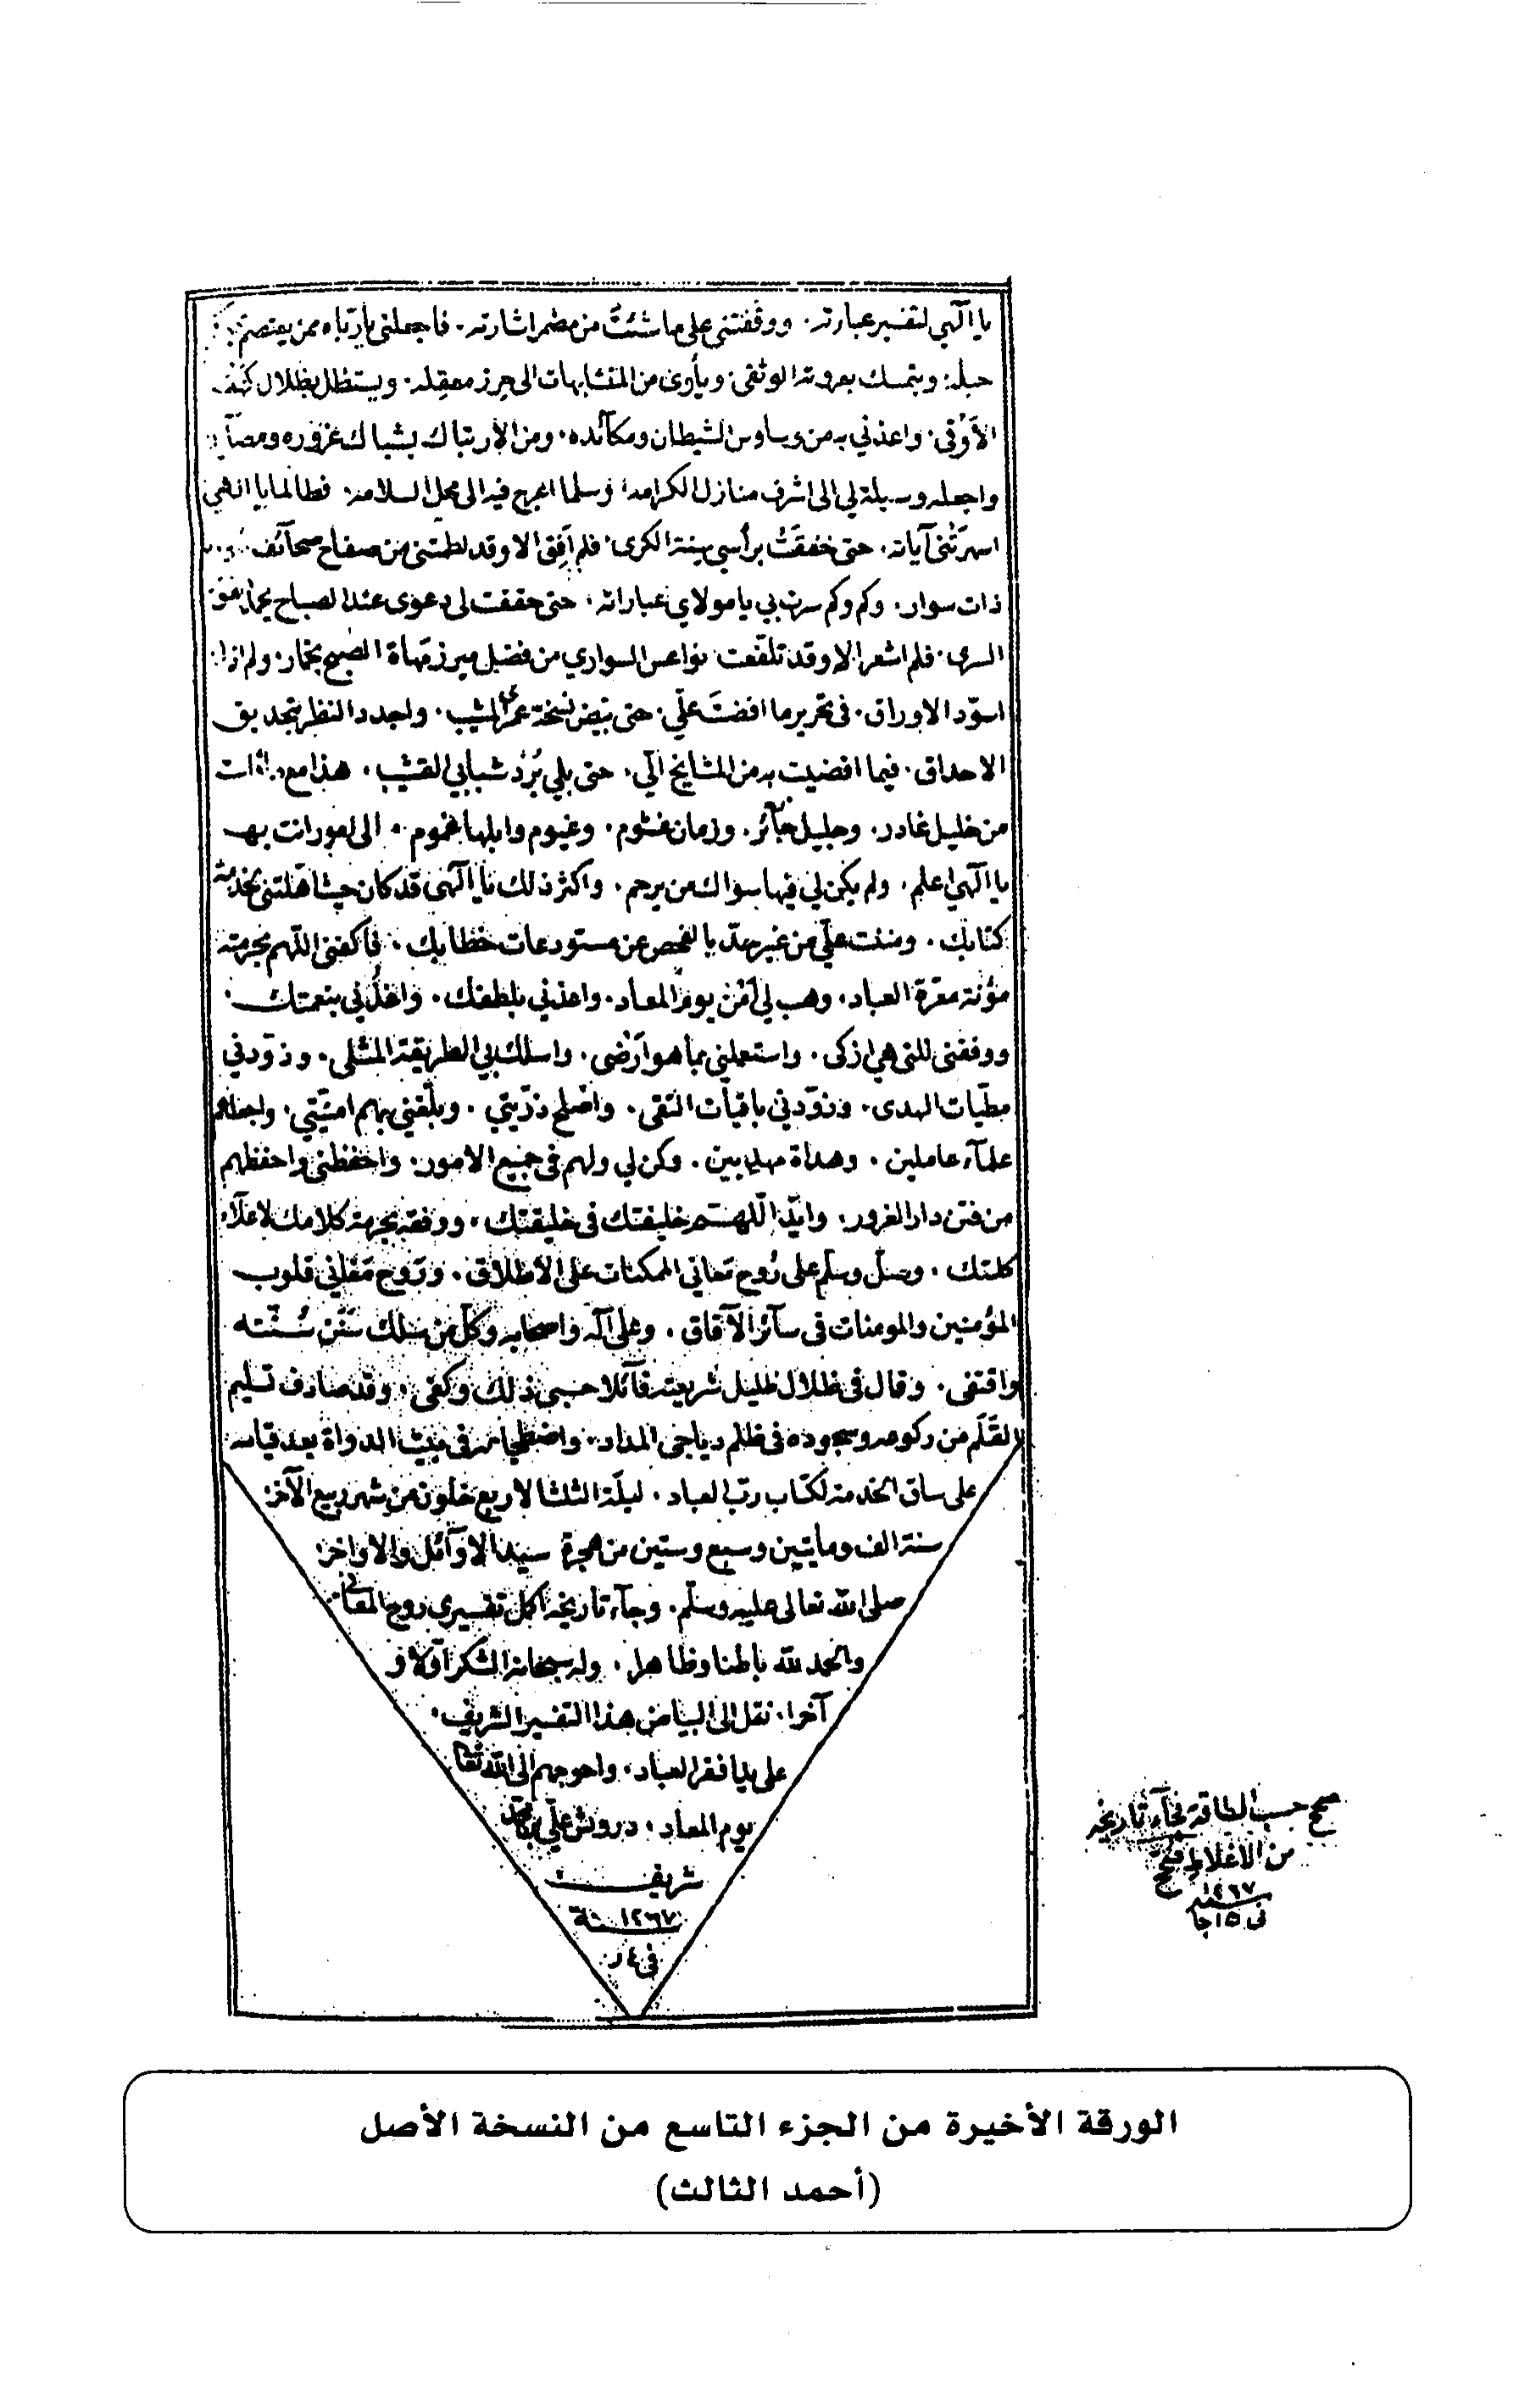 يا الهي لتفسير عبارته . ووفقتني على ما شئت من مضمر اشارته . فاجعلني يا رباه ممن يعتصم
حبله . ويتمسك بعروته الوثقى . ويأوى من المتشابهات الى حرز معقله . ويستظل بظلال كهفه
الأوقى . واعذني به من وساوس الشيطان ومكآئده . ومن الارتباك بشباك غروره ومصآيده
واجعله وسيلة لي الى اشرف منازل الكرامه . وسلما اعرج فيه الى محل السلامه . فطالما يا الهي
اسهرتني آياته . حتى خفقت برأسي سنة الكرى . فلم أفق الا وقد لطمتني من صفاح صحآئف
ذات سوار . وكم وكم سرت بي يا مولاي عباراته . حتى حققت لي دعوى عند الصباح يحمد القوم
السرى . فلم اشعر الا وقد تلفعت نواعس السواري من فضل ميزر مهاة الصبح بخمار . ولم ازل
اسوّد الاوراق . في تحرير ما افضتَ علَيّ . حتى بيّض نسخة عمري المشيب . واجدد النظر بتحديق
الاحداق . فيما افضيت به من المشايخ اليّ . حتى بلي بُرْد شبابي القشيب . هذا مع
من خليل غادر . وجليل جآئر . وزمان غشوم . وغيوم وابلها غموم . الى امور انت بها
يا الهي اعلم . ولم يكن لي فيها سواك من يرحم . واكثر ذلك يا الهي قد كان حيث اهلتني لخدمة
كتابك . ومننت علّي من غير حدّ بالفحص عن مستودعات خطابك . فاكفني اللهم بحرمته
مؤنة معرة العباد . وهب لي أمْنَ يوم المعاد . واعذني بلطفك . واغذُني بنعمتك .
ووفقني للتي هي ازكى . واستعملني بما هو ارضى . واسلك بي الطريقة المثلى . وذوّدني
مطيّات الهدى . وزوّدني باقيات التقى . واصلح ذرّيتي . وبلّغني بهم امنيّتي . واجعلهم
علمآء عاملين . وهداة مهديين . وكن لي ولهم في جميع الامور . واحفظني واحفظهم
من فتن دار الغرور . وايّد اللهم خليفتك في خليقتك . ووفقه بحرمة كلامك لاعلآء
كلمتك . وصلّ وسلّم على رُوح معاني الممكنات على الاطلاق . ورَوح معاني قلوب
المؤمنين والمومنات في سآئر الآفاق . وعلى آله واصحابه وكل من سلك سَنَن سُنّته
واقتفى . وقال في ظلال ظليل شريعته قآئلا حسبي ذلك وكفى . وقد صادف تسليم
القَلَم من ركوعه وسجوده في ظلم دياجي المداد . واضطجاعه في بيت الدواة بعد قيامه
على ساق الخدمة لكتاب ربّ العباد . ليلة الثلثا لاربع خلون من شهر ربيع الآخر
سنة الف ومايتين وسبع وستين من هجرة سيد الاوآئل والاواخر
صلى الله تعالى عليه وسلّم . وجآء تاريخه اكمل تفسيري روح المعاني
والحمد لله باطنا وظاهرا . وله سبحانه الشكر اوّلا و
آخرا . نقل الى البياض هذا التفسير الشريف .
على يد افقر العباد . واحوجهم الى الله تعالى
يوم المعاد . درويش علي بن محمد
شريف
١٢٦٧ سنة
في ٤ ر
صحح حسب الطاقة فجآء تاريخه
من الاغلاط صح
١٢٦٧
سنة
في ١٥ جا
الورقة الأخيرة من الجزء التاسع من النسخة الأصل
(أحمد الثالث)